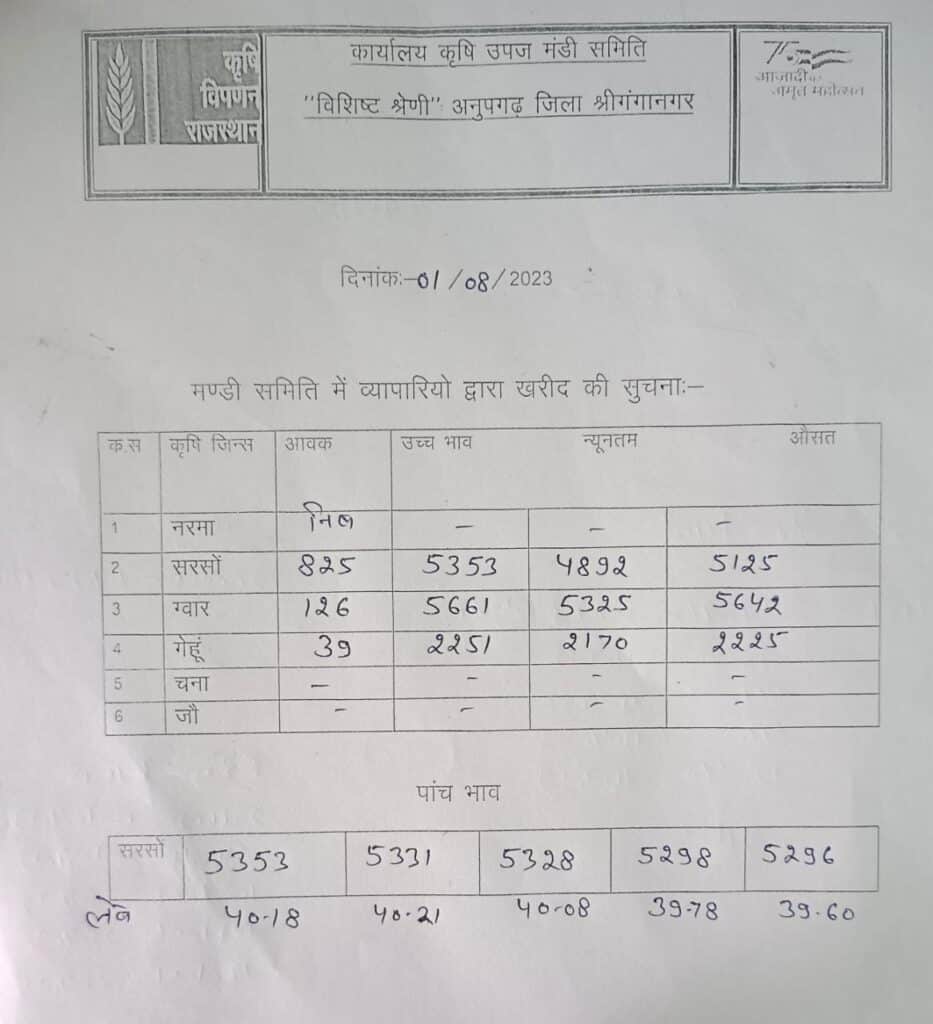 कृषि
विपणन
राजस्थान
कार्यालय कृषि उपज मंडी समिति
''विशिष्ट श्रेणी'': अनुपगढ़ जिला श्रीगंगानगर
75
आजादी का
अमृत महोत्सव
दिनांकः–01/08/2023
मण्डी समिति में व्यापारियो द्वारा खरीद की सुचनाः–
क.स कृषि जिन्स आवक उच्च भाव न्यूनतम औसत
1 नरमा निल – – –
2 सरसों 825 5353 4892 5125
3 ग्वार 126 5661 5325 5642
4 गेहूं 39 2251 2170 2225
5 चना – – – –
6 जौ – – – –
पांच भाव
सरसों 5353 5331 5328 5298 5296
लेब 40-18 40-21 40-08 39-78 39-60